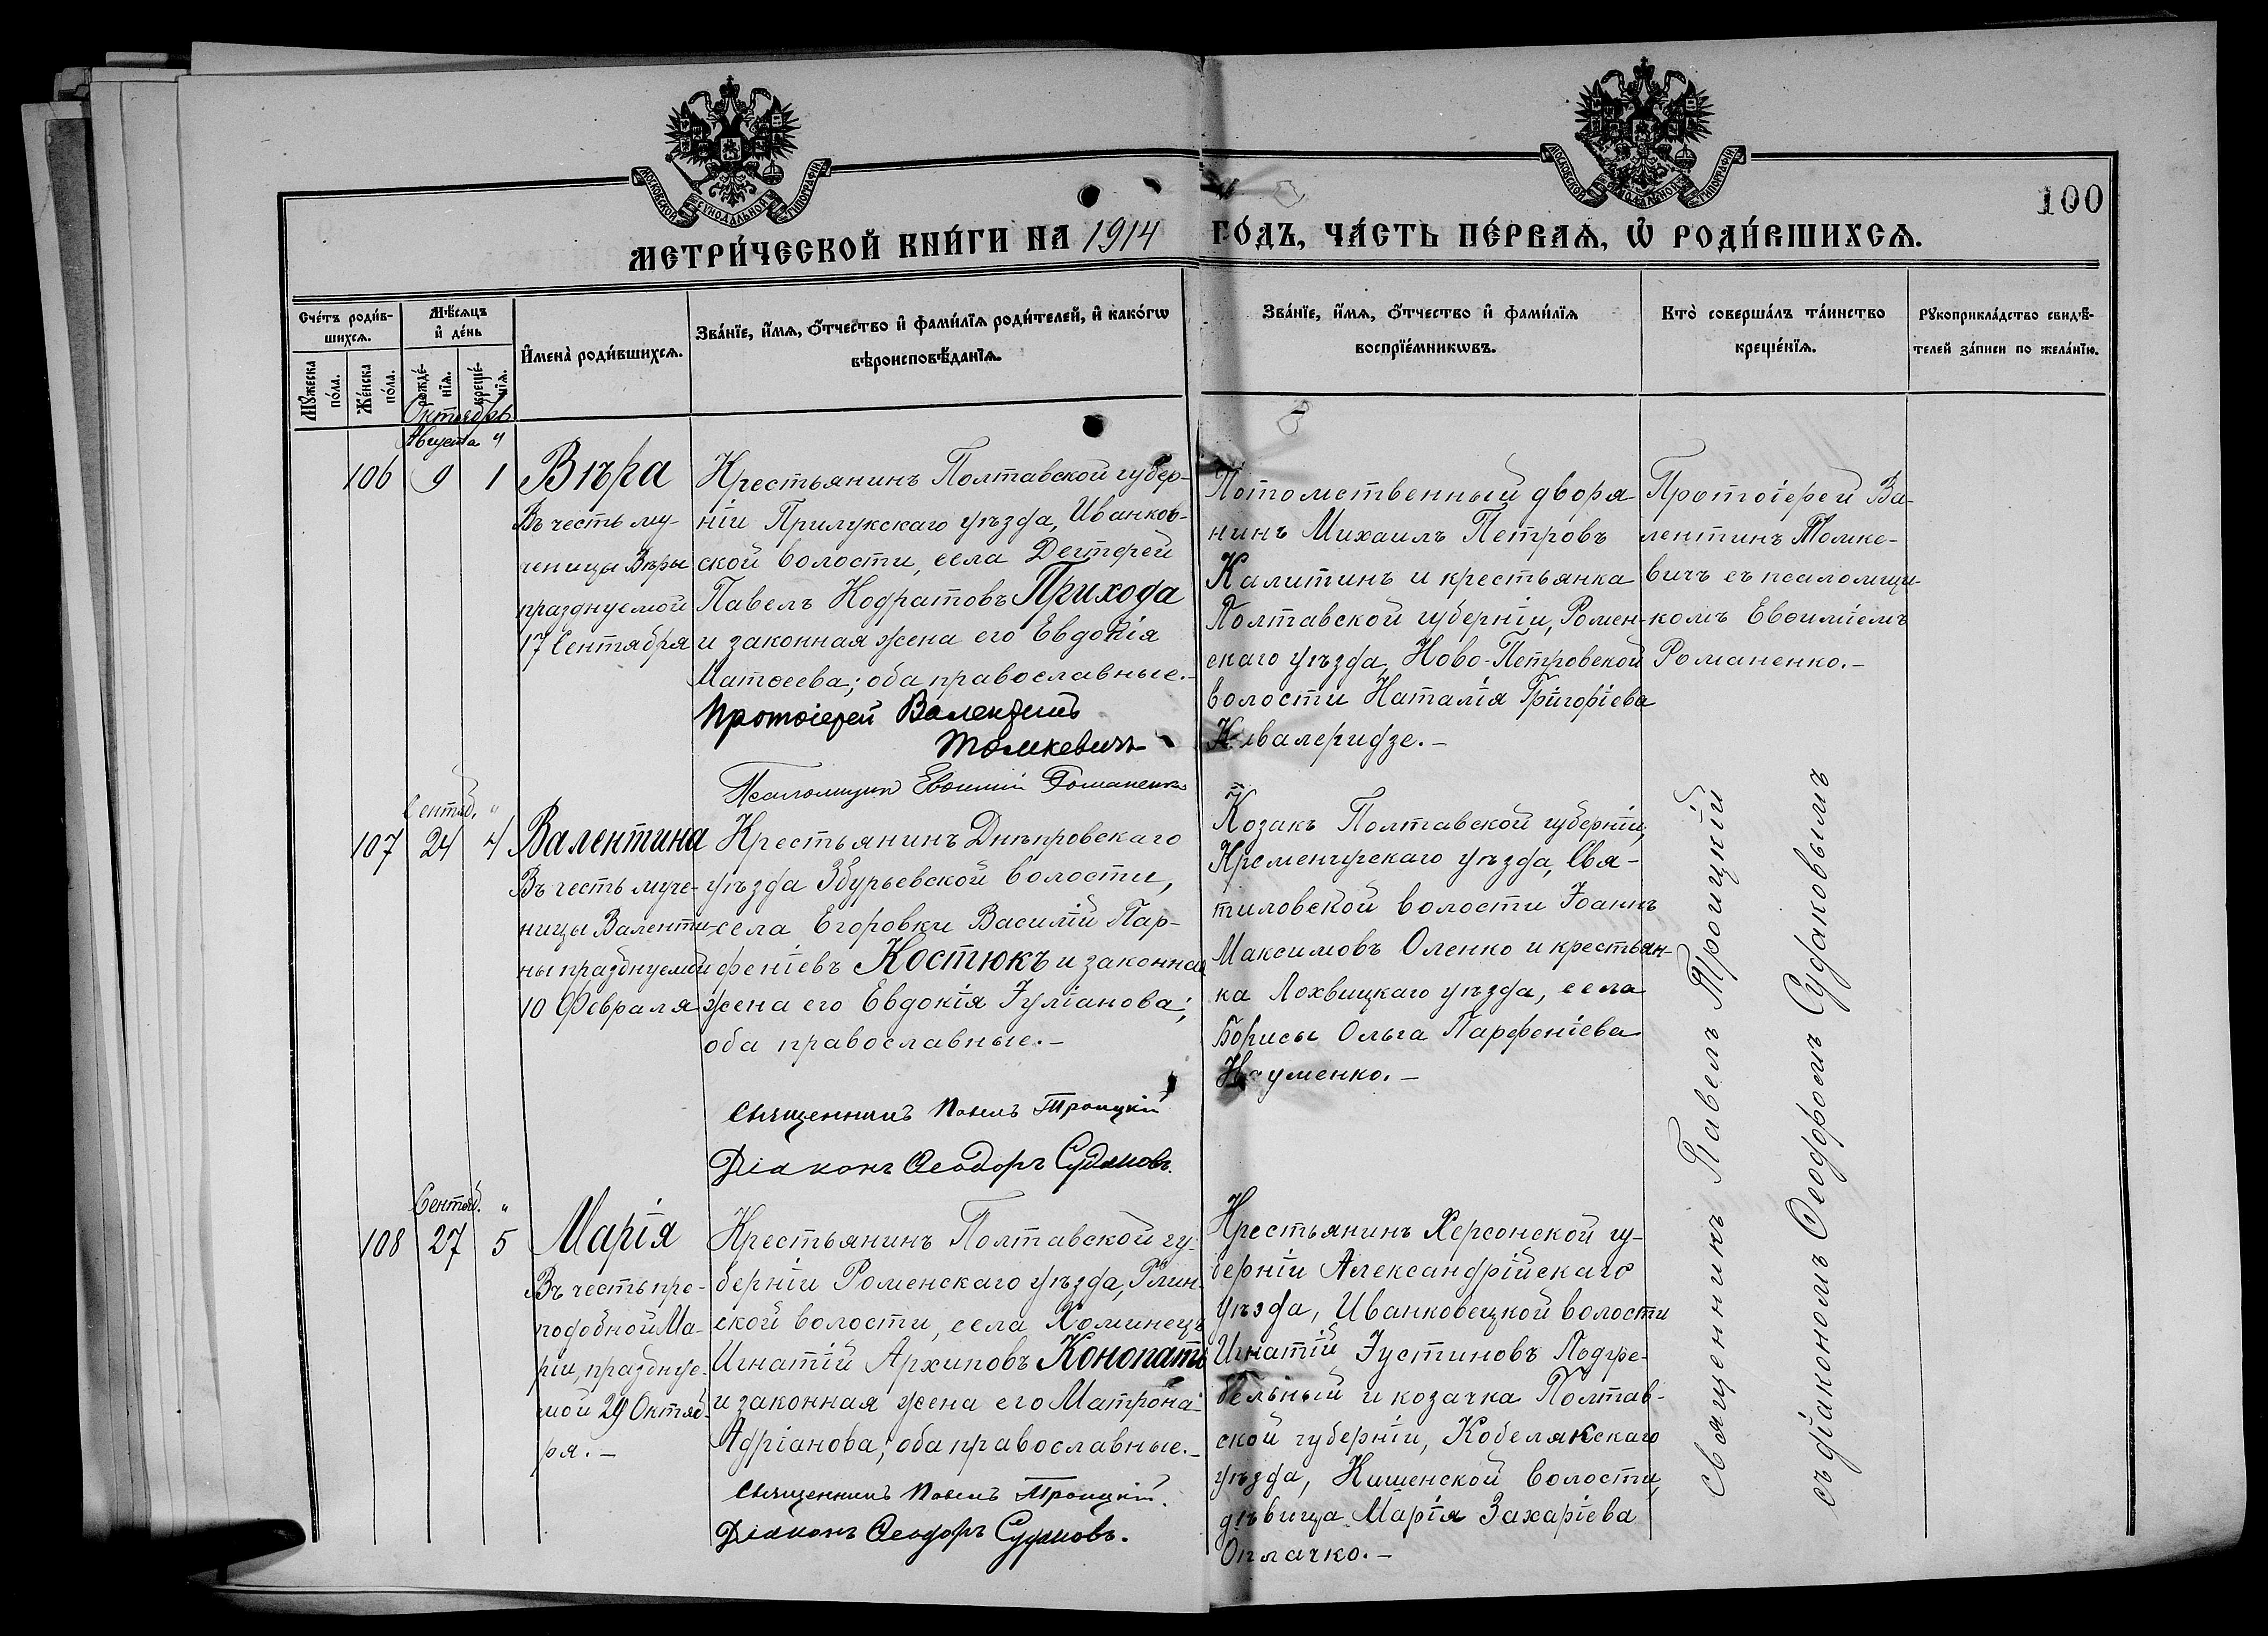 МОСКОВСКОЙ СѴНОДАЛЬНОЙ ТИПОГРАФІИ
МОСКОВСКОЙ СѴНОДАЛЬНОЙ ТИПОГРАФІИ
100
МЕТРИ́ЧЕСКОЙ КНИ́ГИ НА 1914 ГО́ДЪ, ЧА́СТЬ ПЕ́РВАѦ, Ѡ҆ РОДИ́ВШИХСѦ.
Сче́тъ роди́в-
шихсѧ.
Мѣ́сѧцъ
и҆ де́нь
Мꙋ́жеска
по́ла.
Же́нска
по́ла.
рожде́-
нїѧ.
креще́-
нїѧ.
И҆мена̀ роди́вшихсѧ.
Зва́нїе, и҆́мѧ, ѻ҆́тчество и҆ фами́лїѧ роди́телей, и҆ како́гѡ
вѣроисповѣ́данїѧ.
Зва́нїе, и҆́мѧ, ѻ҆́тчество и҆ фами́лїѧ
воспрїе́мникѡвъ.
Кто̀ соверша́лъ та́инство
креще́нїѧ.
Рꙋкоприкла́дство свидѣ́-
телей за́писи по жела́нїю.
Октябрь
Августа "
106 9 1
Вѣра
Въ честь му-
ченицы Вѣры
празднуемой
17 Сентября
Крестьянинъ Полтавской губер-
ніи Прилукскаго уѣзда, Иванков-
ской волости, села Дегтерей
Павелъ Кодратовъ Прихода
и законная жена его Евдокія
Матѳеева; оба православные.-
Протоіерей Валентинъ
Томкевичъ
Псаломщик Евѳимій Романенко
Потомственный дворя-
нинъ Михаилъ Петровъ
Калитинъ и крестьянка
Полтавской губерніи, Ромен-
скаго уѣзда, Ново-Петровской
волости Наталія Григоріева
Кавалеридзе.-
Протоіерей Ва-
лентинъ Томке-
вичъ съ псаломщи-
комъ Евѳиміемъ
Романенко.-
Сентяб. "
107 24 4
Валентина
Въ честь муче-
ницы Валенти-
ны празднуемой
10 Февраля
Крестьянинъ Днѣпровскаго
уѣзда Збурьевской волости,
села Егоровки Василій Пар-
феніевъ Костюкъ и законная
жена его Евдокія Іуліанова;
оба православные.-
Священникъ Павелъ Троицкій
Діаконъ Ѳеодоръ Судаковъ.
Козакъ Полтавской губерніи,
Кременчугскаго уѣзда, Свя-
тиловской волости Іоаннъ
Максимовъ Оленко и крестьян-
ка Лохвицкаго уѣзда, села
Борисы Ольга Парфеніева
Науменко.-
Священникъ Павелъ Троицкій
съ діакономъ Ѳеодоромъ Судаковымъ
Сентяб. "
108 27 5
Марія
Въ честь пре-
подобной Ма-
ріи, празднуе-
мой 29 Октяб-
ря.-
Крестьянинъ Полтавской гу-
берніи Роменскаго уѣзда, Глин-
ской волости, села Хоминецъ
Игнатій Архиповъ Конопатъ
и законная жена его Матрона
Адріанова; оба православные.-
Священникъ Павелъ Троицкій.
Діаконъ Ѳеодоръ Судаковъ.
Крестьянинъ Херсонской гу-
берніи Александрійскаго
уѣзда, Иванковецкой волости
Игнатій Іустиновъ Подгре-
бельный и козачка Полтав-
ской губерніи, Кобелякскаго
уѣзда, Кишенской волости,
дѣвица Марія Захаріева
Оплачко.-